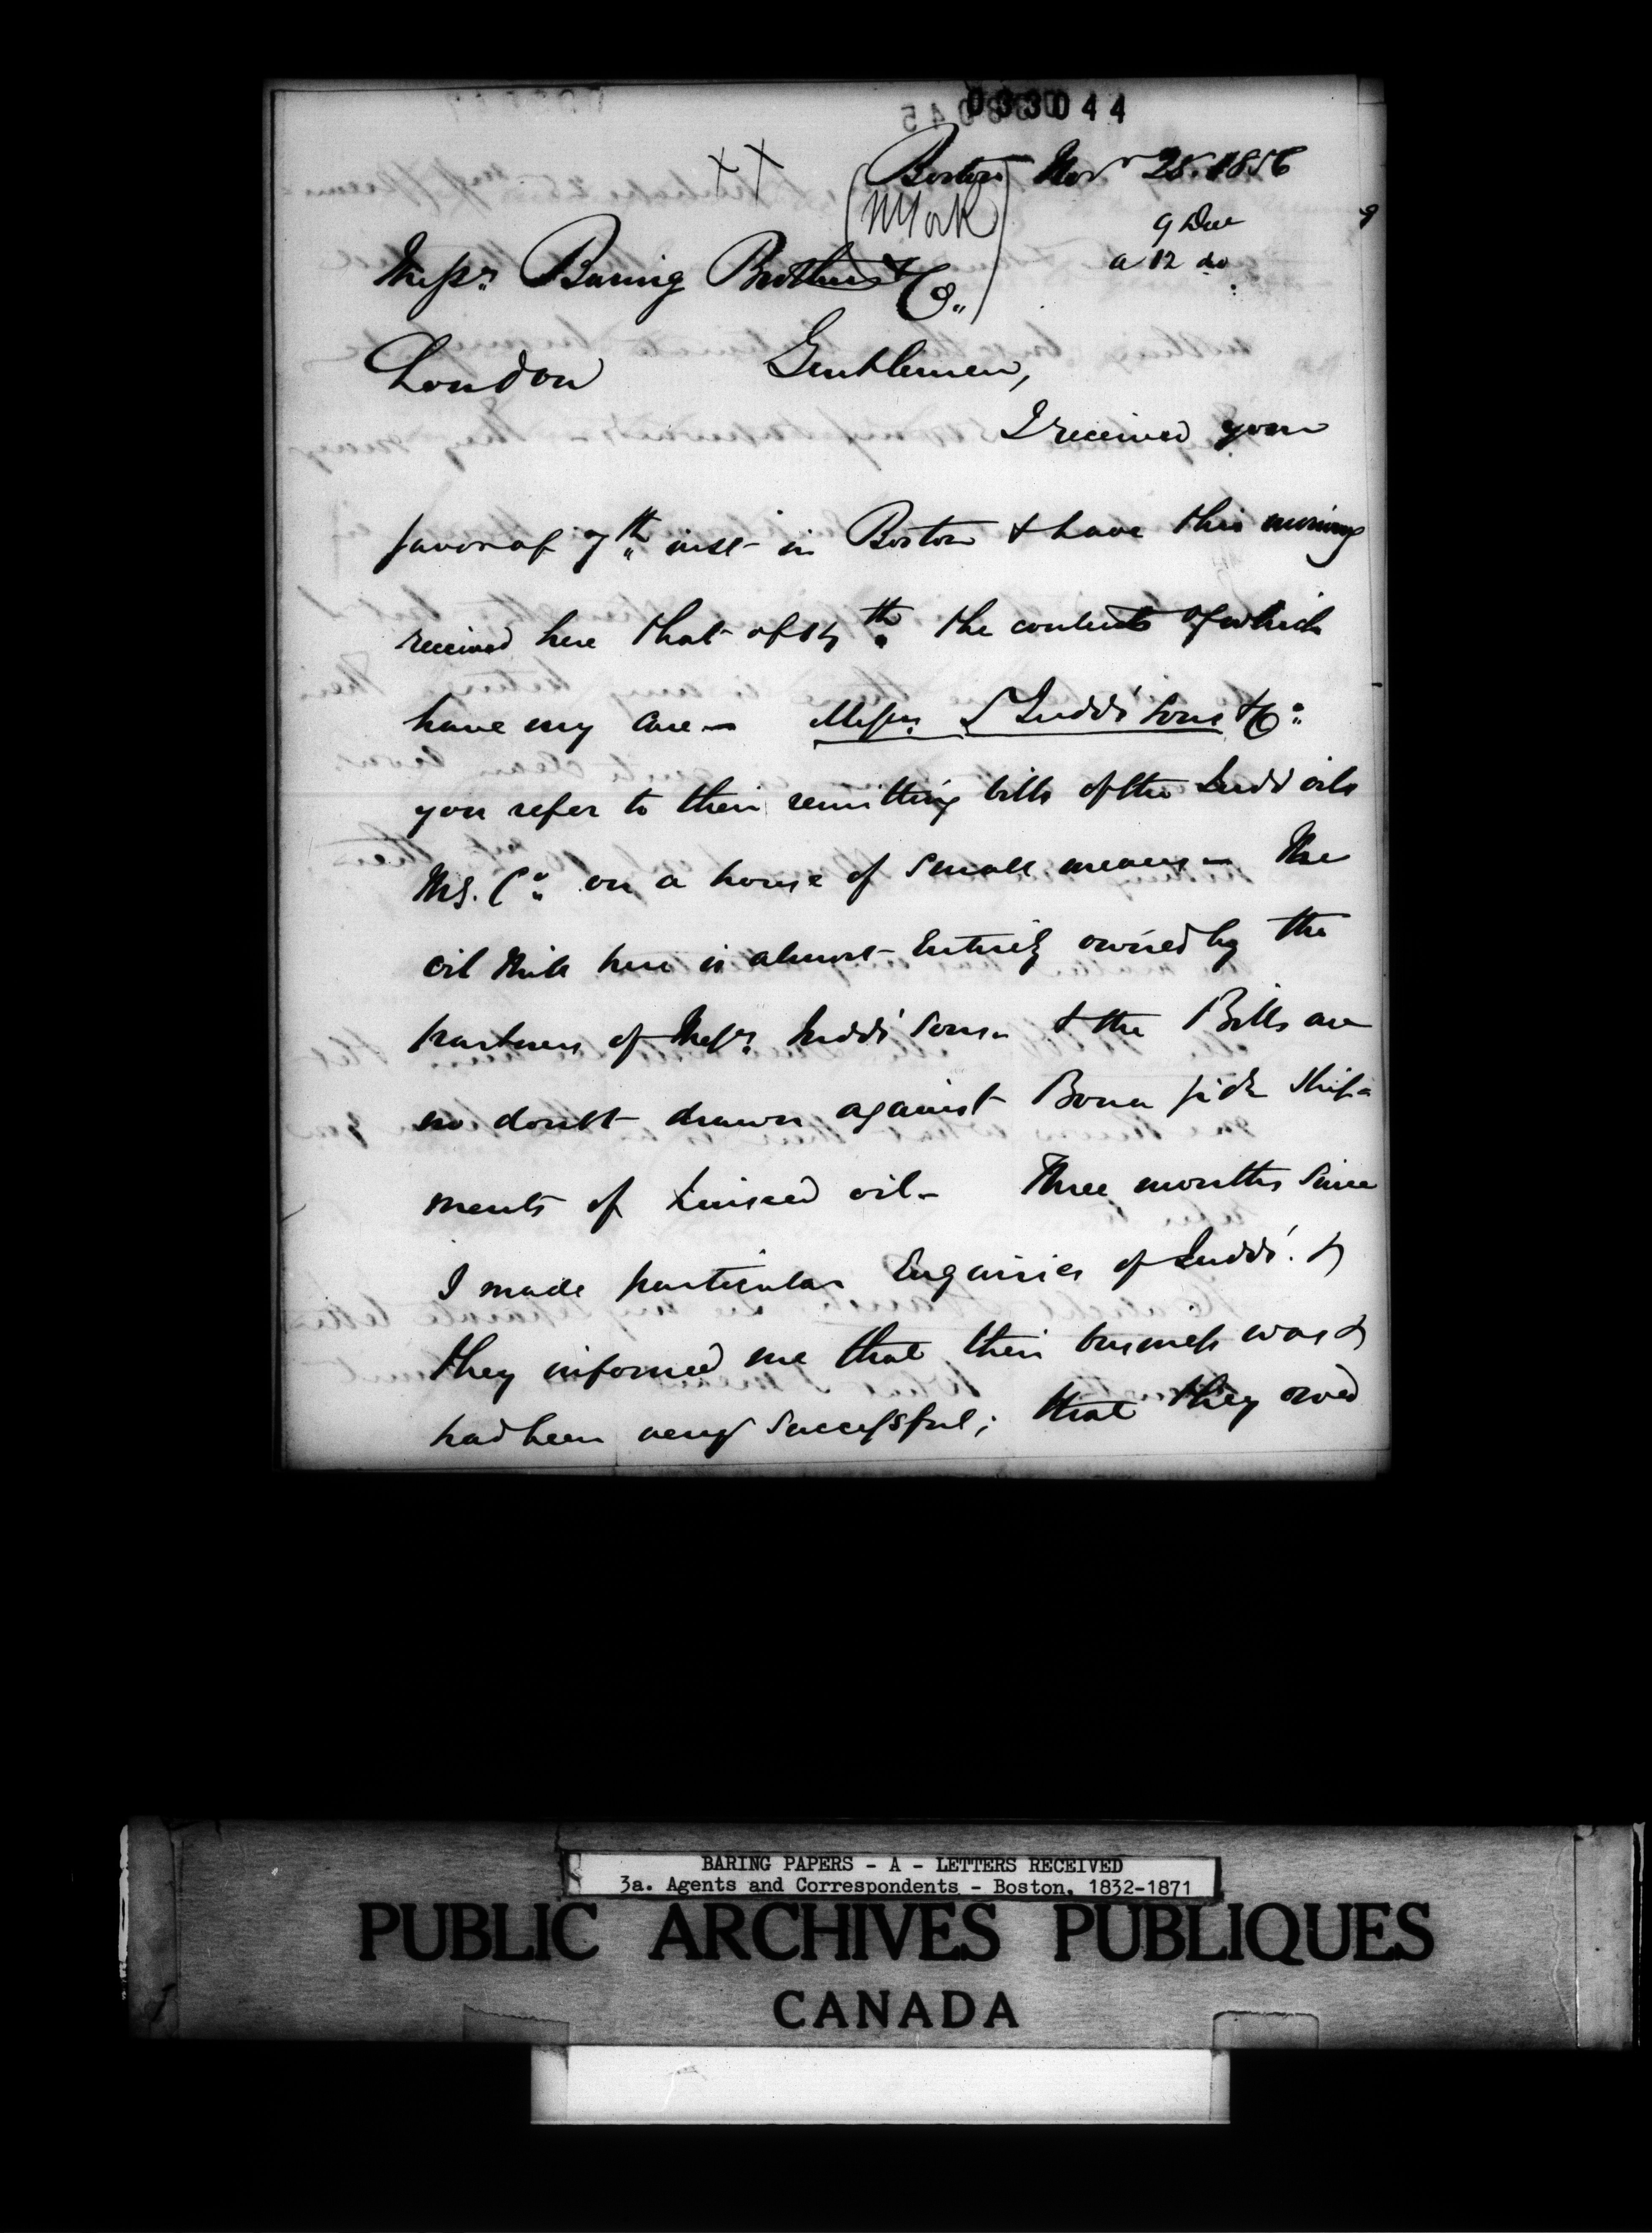 033044
Boston Nov 25. 1856
(N York)
9 Dec
a 12 do
Messrs Baring Brothers & Co.
London Gentlemen,
I received your
favor of 7th inst in Boston & have this morning
received here that of 14th the contents of which
have my care — Messrs Judds' Sons & Co
you refer to their remitting bills of the Judd oils
Mg. Co on a house of small means — The
oil Mill here is almost Entirely owned by the
partners of Messrs Judds' Sons & the Bills are
no doubt drawn against Bona fide Ship=
ments of Linseed oil — Three months since
I made particular Enquiries of Judds' &
they informed me that their business was &
had been very successful; that they owed
BARING PAPERS - A - LETTERS RECEIVED
3a. Agents and Correspondents - Boston, 1832-1871
PUBLIC ARCHIVES PUBLIQUES
CANADA